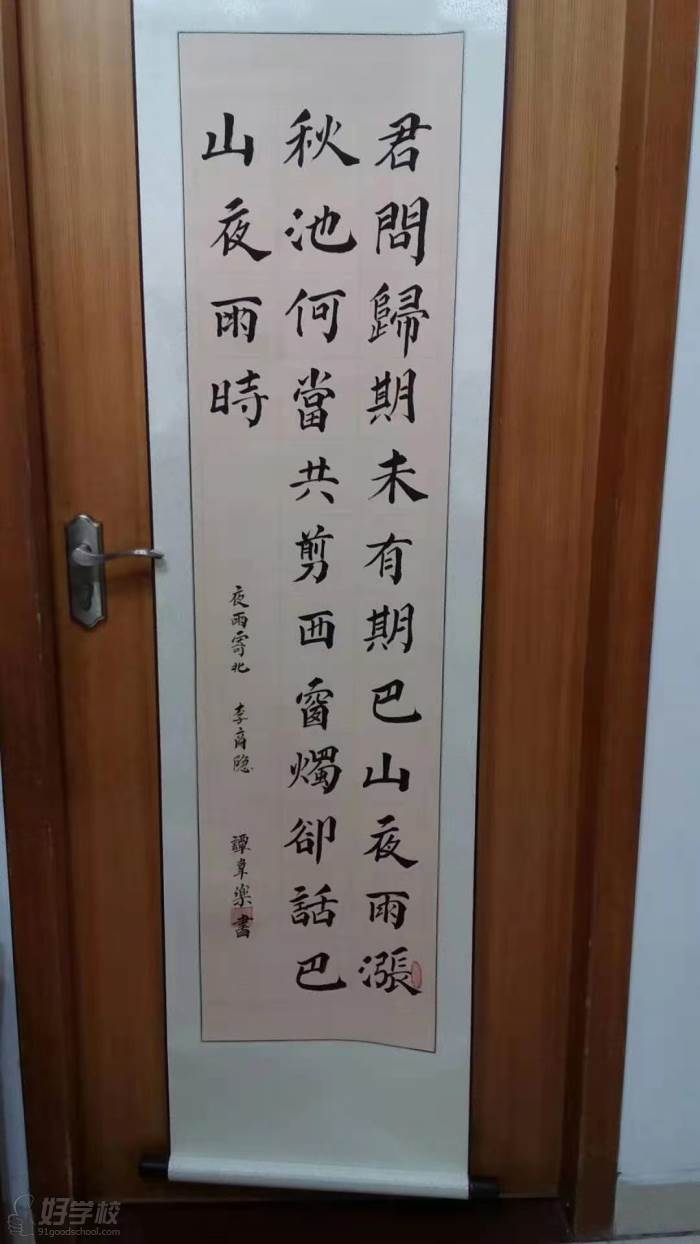 君問歸期未有期巴山夜雨漲
秋池何當共剪西窗燭卻話巴
山夜雨時
夜雨寄北 李商隐 譚章樂書
好学校
91goodschool.com